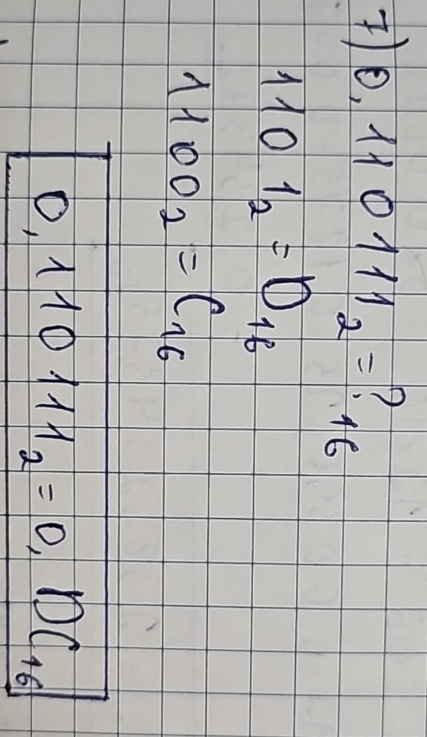 7) 0,110111₂ = ?₁₆
1101₂ = D₁₆
1100₂ = C₁₆
0,110111₂ = 0,DC₁₆